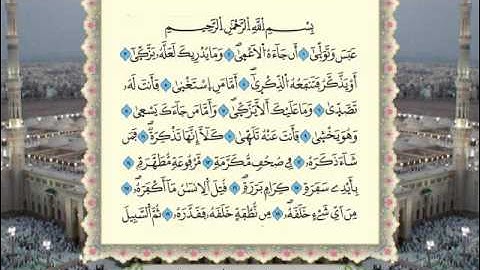 بِسْمِ اللَّهِ الرَّحْمَٰنِ الرَّحِيمِ
عَبَسَ وَتَوَلَّىٰ أَن جَاءَهُ الْأَعْمَىٰ وَمَا يُدْرِيكَ لَعَلَّهُ يَزَّكَّىٰ
أَوْ يَذَّكَّرُ فَتَنفَعُهُ الذِّكْرَىٰ أَمَّا مَنِ اسْتَغْنَىٰ فَأَنتَ لَهُ
تَصَّدَّىٰ وَمَا عَلَيْكَ أَلَّا يَزَّكَّىٰ وَأَمَّا مَن جَاءَكَ يَسْعَىٰ
وَهُوَ يَخْشَىٰ فَأَنتَ عَنْهُ تَلَهَّىٰ كَلَّا إِنَّهَا تَذْكِرَةٌ فَمَن
شَاءَ ذَكَرَهُ فِي صُحُفٍ مُّكَرَّمَةٍ مَّرْفُوعَةٍ مُّطَهَّرَةٍ
بِأَيْدِي سَفَرَةٍ كِرَامٍ بَرَرَةٍ قُتِلَ الْإِنسَٰنُ مَا أَكْفَرَهُ
مِنْ أَيِّ شَيْءٍ خَلَقَهُ مِن نُّطْفَةٍ خَلَقَهُ فَقَدَّرَهُ ثُمَّ السَّبِيلَ